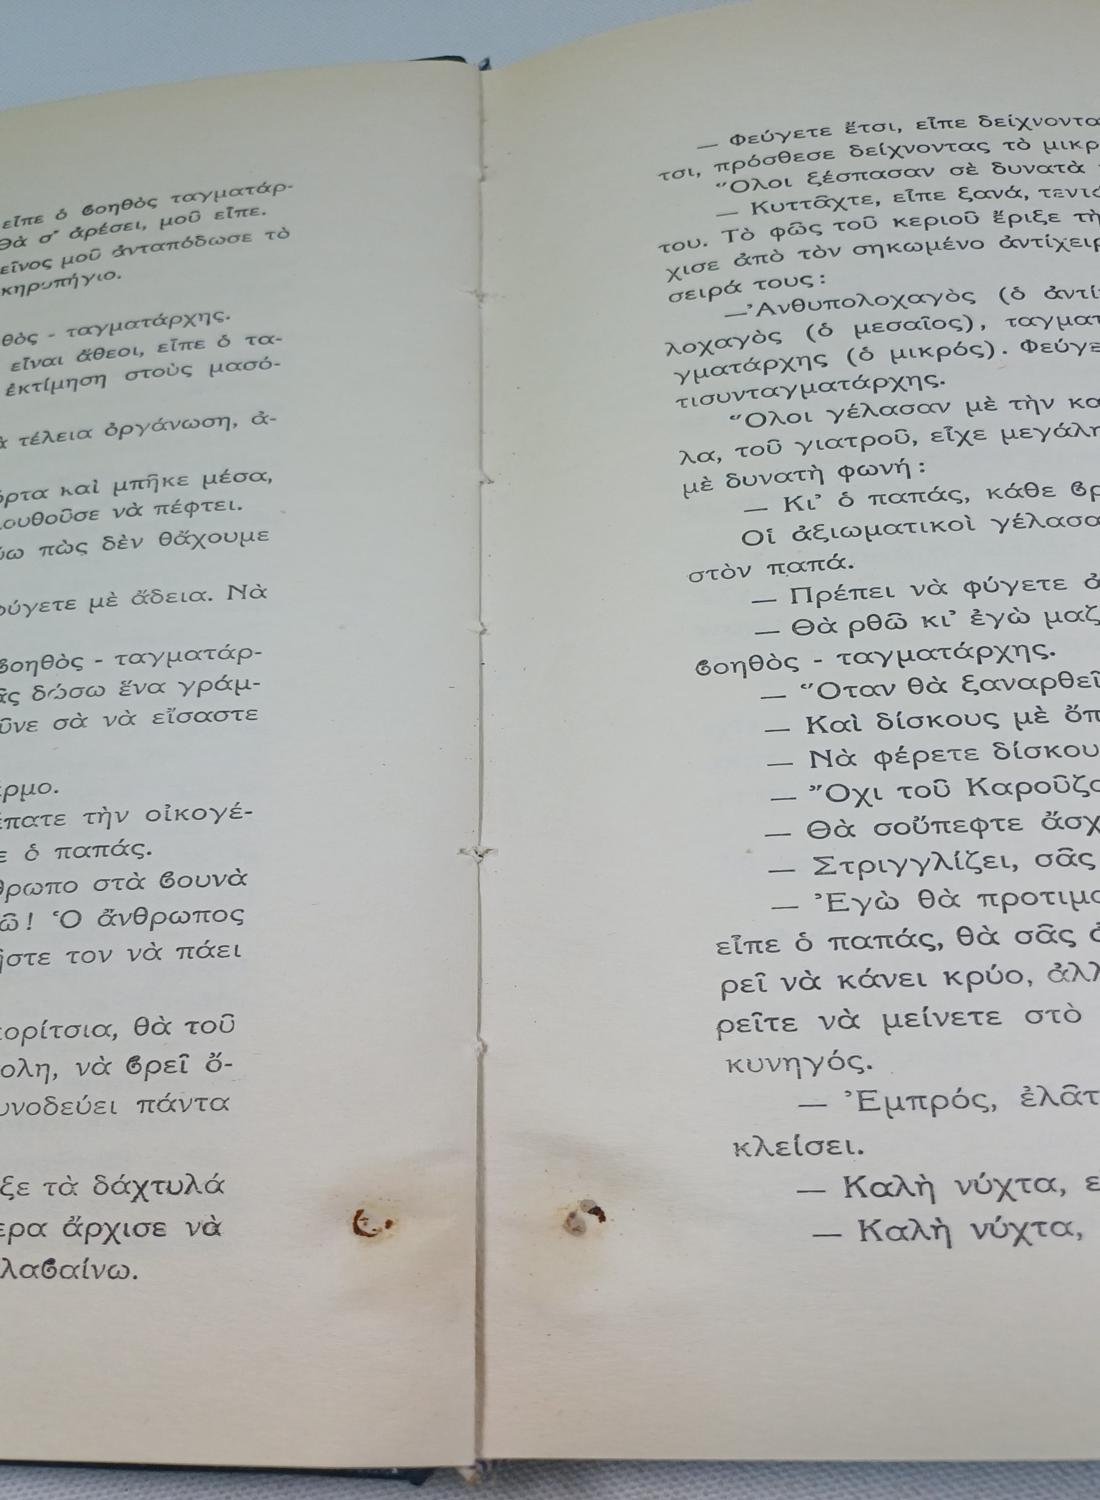 εἶπε ὁ βοηθὸς ταγματάρ-
θὰ σ' ἀρέσει, μοῦ εἶπε.
εῖνος μοῦ ἀνταπόδωσε τὸ
κηρυπήγιο.
θὸς - ταγματάρχης.
εἶναι ἄθεοι, εἶπε ὁ τα-
ἐκτίμηση στοὺς μασό-
τέλεια ὀργάνωση, ἀ-
όρτα καὶ μπῆκε μέσα,
λουθοῦσε νὰ πέφτει.
πὼς δὲν θἄχουμε
φύγετε μὲ ἄδεια. Νὰ
βοηθὸς - ταγματάρ-
ᾶς δώσω ἕνα γράμ-
ῦνε σὰ νὰ εἴσαστε
ρμο.
πατε τὴν οἰκογέ-
ὁ παπάς.
θρωπο στὰ βουνὰ
ῶ! Ὁ ἄνθρωπος
ῆστε τον νὰ πάει
κορίτσια, θὰ τοῦ
ολη, νὰ βρεῖ ὄ-
υνοδεύει πάντα
ξε τὰ δάχτυλά
ερα ἄρχισε νὰ
λαβαίνω.
— Φεύγετε ἔτσι, εἶπε δείχνοντα
τσι, πρόσθεσε δείχνοντας τὸ μικρ
Ὅλοι ξέσπασαν σὲ δυνατὰ
— Κυττᾶχτε, εἶπε ξανά, τεντώ
του. Τὸ φῶς τοῦ κεριοῦ ἔριξε τὴ
χισε ἀπὸ τὸν σηκωμένο ἀντίχειρ
σειρά τους:
—Ἀνθυπολοχαγὸς (ὁ ἀντί
λοχαγὸς (ὁ μεσαῖος), ταγματ
γματάρχης (ὁ μικρός). Φεύγε
τισυνταγματάρχης.
Ὅλοι γέλασαν μὲ τὴν κα
λα, τοῦ γιατροῦ, εἶχε μεγάλη
μὲ δυνατὴ φωνή:
— Κι' ὁ παπάς, κάθε βρ
Οἱ ἀξιωματικοὶ γέλασα
στὸν παπά.
— Πρέπει νὰ φύγετε ἀ
— Θὰ ρθῶ κι' ἐγὼ μαζ
βοηθὸς - ταγματάρχης.
— Ὅταν θὰ ξαναρθεῖ
— Καὶ δίσκους μὲ ὄπ
— Νὰ φέρετε δίσκου
— Ὄχι τοῦ Καροῦζο
— Θὰ σοὔπεφτε ἄσχ
— Στριγγλίζει, σᾶς
— Ἐγὼ θὰ προτιμο
εἶπε ὁ παπάς, θὰ σᾶς
ρεῖ νὰ κάνει κρύο, ἀλλ
ρεῖτε νὰ μείνετε στὸ
κυνηγός.
— Ἐμπρός, ἐλᾶτ
κλείσει.
— Καλὴ νύχτα, ε
— Καλὴ νύχτα,